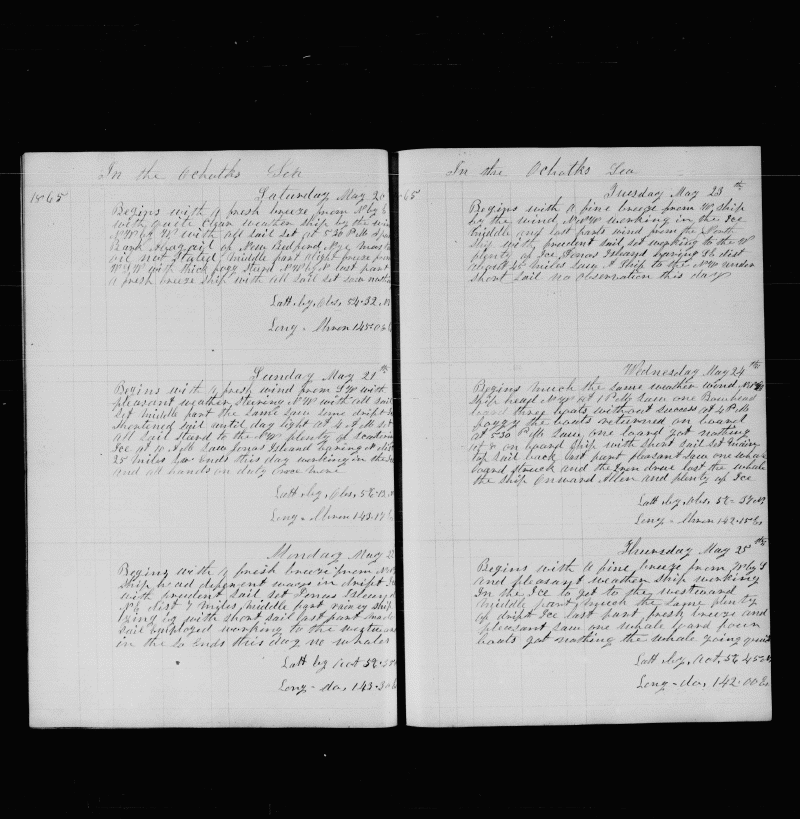 In the Ochotks Sea
1865
Saturday May 20
Begins with a fresh breeze from N by E
with quite clear weather ship by the win
NW by W with all sail set at 5-30 PM Spoke
Bark of New Bedford
oil not Stated middle part light breeze from
with thick fogg Steerd NW by N last part
a fresh breeze ship with all sail set saw noth
Latt by Obs, 54-32 N
Long - Chron 145-0
Sunday May 21 th
Begins with a fresh wind from SW with
pleasant weather, steering NW with all sail
set middle part the same saw some drift I
shortened sail until day light at 4 AM set
all sail stand to the NW plenty of scattern
Ice at 10 AM Saw Jonas Island baring N dist
25 miles So Ends this day working in the
and all hands on duty
Latt by Obs, 56-13
Long - Chron 143-17 E
Monday May 22
Begins with a fresh breeze from
Ship head diferent ways in drift I
with prudent sail set Jonas Island
NE dist 7 miles middle part rainey ship
lying by with short sail last part made
sail Employed working to the westward
in the So Ends this day no whales
Latt by Act 56-
Long - do, 143-30 E
In the Ochotks Sea
65
Tuesday May 23 th
Begins with a fine breeze from W, ship
by the wind, NNW working in the Ice
middle and last parts wind from the North
Ship with prudent sail set working to the W
plenty of Ice, Jonas Island baring dist
about 45 miles Saw A Ship to the NW under
short sail no observation this day
Wednesday May 24 th
Begins much the same weather wind
Ship head NW at 1 PM Saw one Bowhead
loard three boats without success at 4 PM
foggy the boats returned on board
at 5-30 PM Saw one loard got nothing
at 8 on board ship with short sail set
top sail back last part pleasant saw one whale
loard struck and the Iron drew lost the whale
the ship Onward Allen and plenty of Ice
Latt by Obs, 56-
Long - Chron 142-15 E
Thursday May 25 th
Begins with a fine breeze from W by S
and pleasant weather ship working
In the Ice to get to the westward
middle part much the same plenty
of drift Ice last part fresh breeze and
pleasant saw one whale loard four
boats got nothing the whale going quick
Latt by Act, 56 45 N
Long - do, 142-00 E